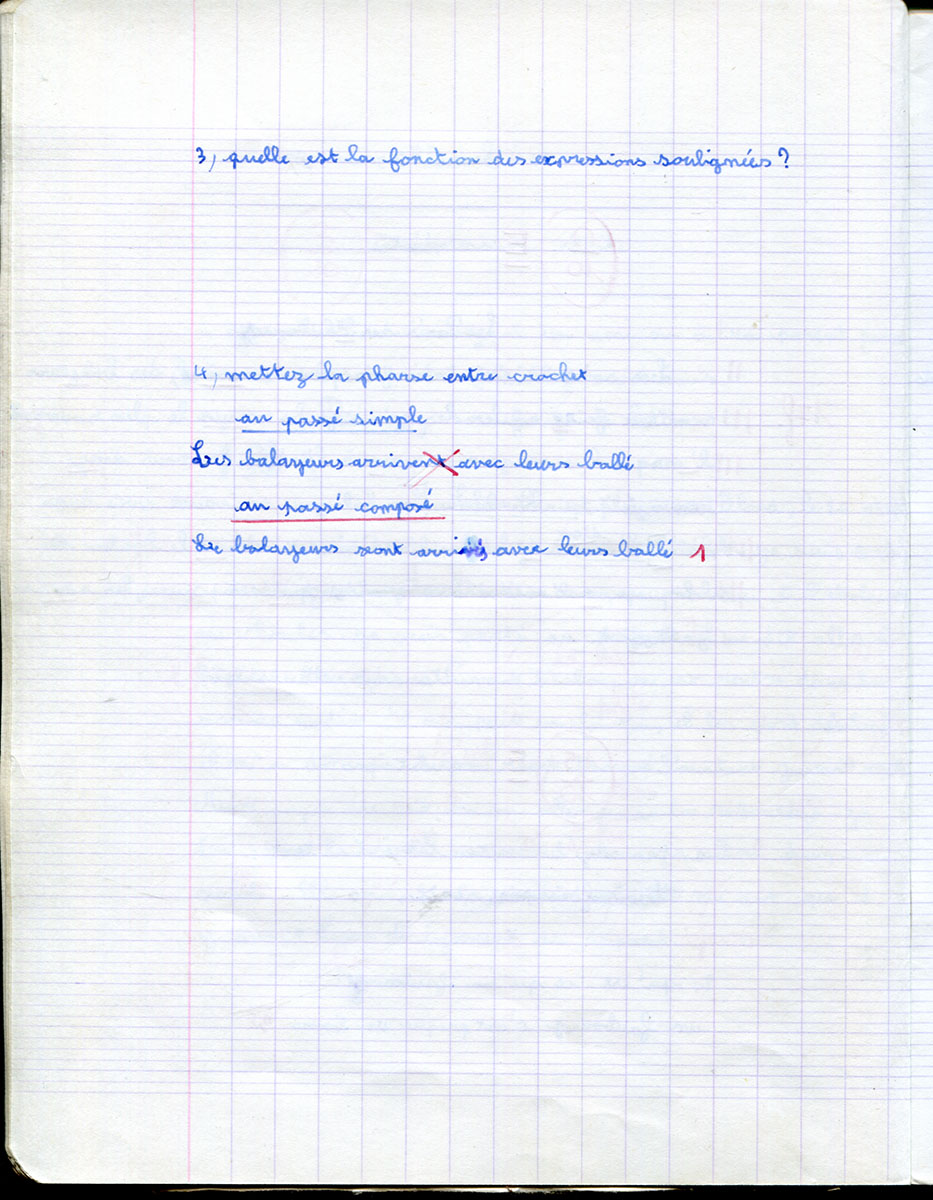 3, quelle est la fonction des expressions soulignées ?
4, mettez la pharse entre crochet
au passé simple
Les balayeurs arrivent avec leurs ballé
au passé composé
Le balayeurs sont arrivés avec leurs ballé 1